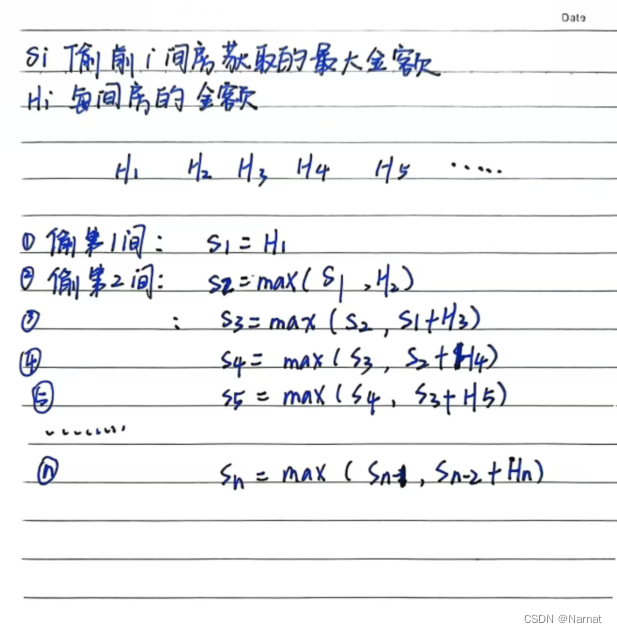 Date
Si 偷前i间房获取的最大金额
Hi 每间房的金额
H1 H2 H3 H4 H5 ·····
① 偷第1间: S1 = H1
② 偷第2间: S2 = max(S1, H2)
③ : S3 = max(S2, S1+H3)
④ S4 = max(S3, S2+H4)
⑤ S5 = max(S4, S3+H5)
·······
ⓝ Sn = max(Sn-1, Sn-2+Hn)
CSDN @Narnat